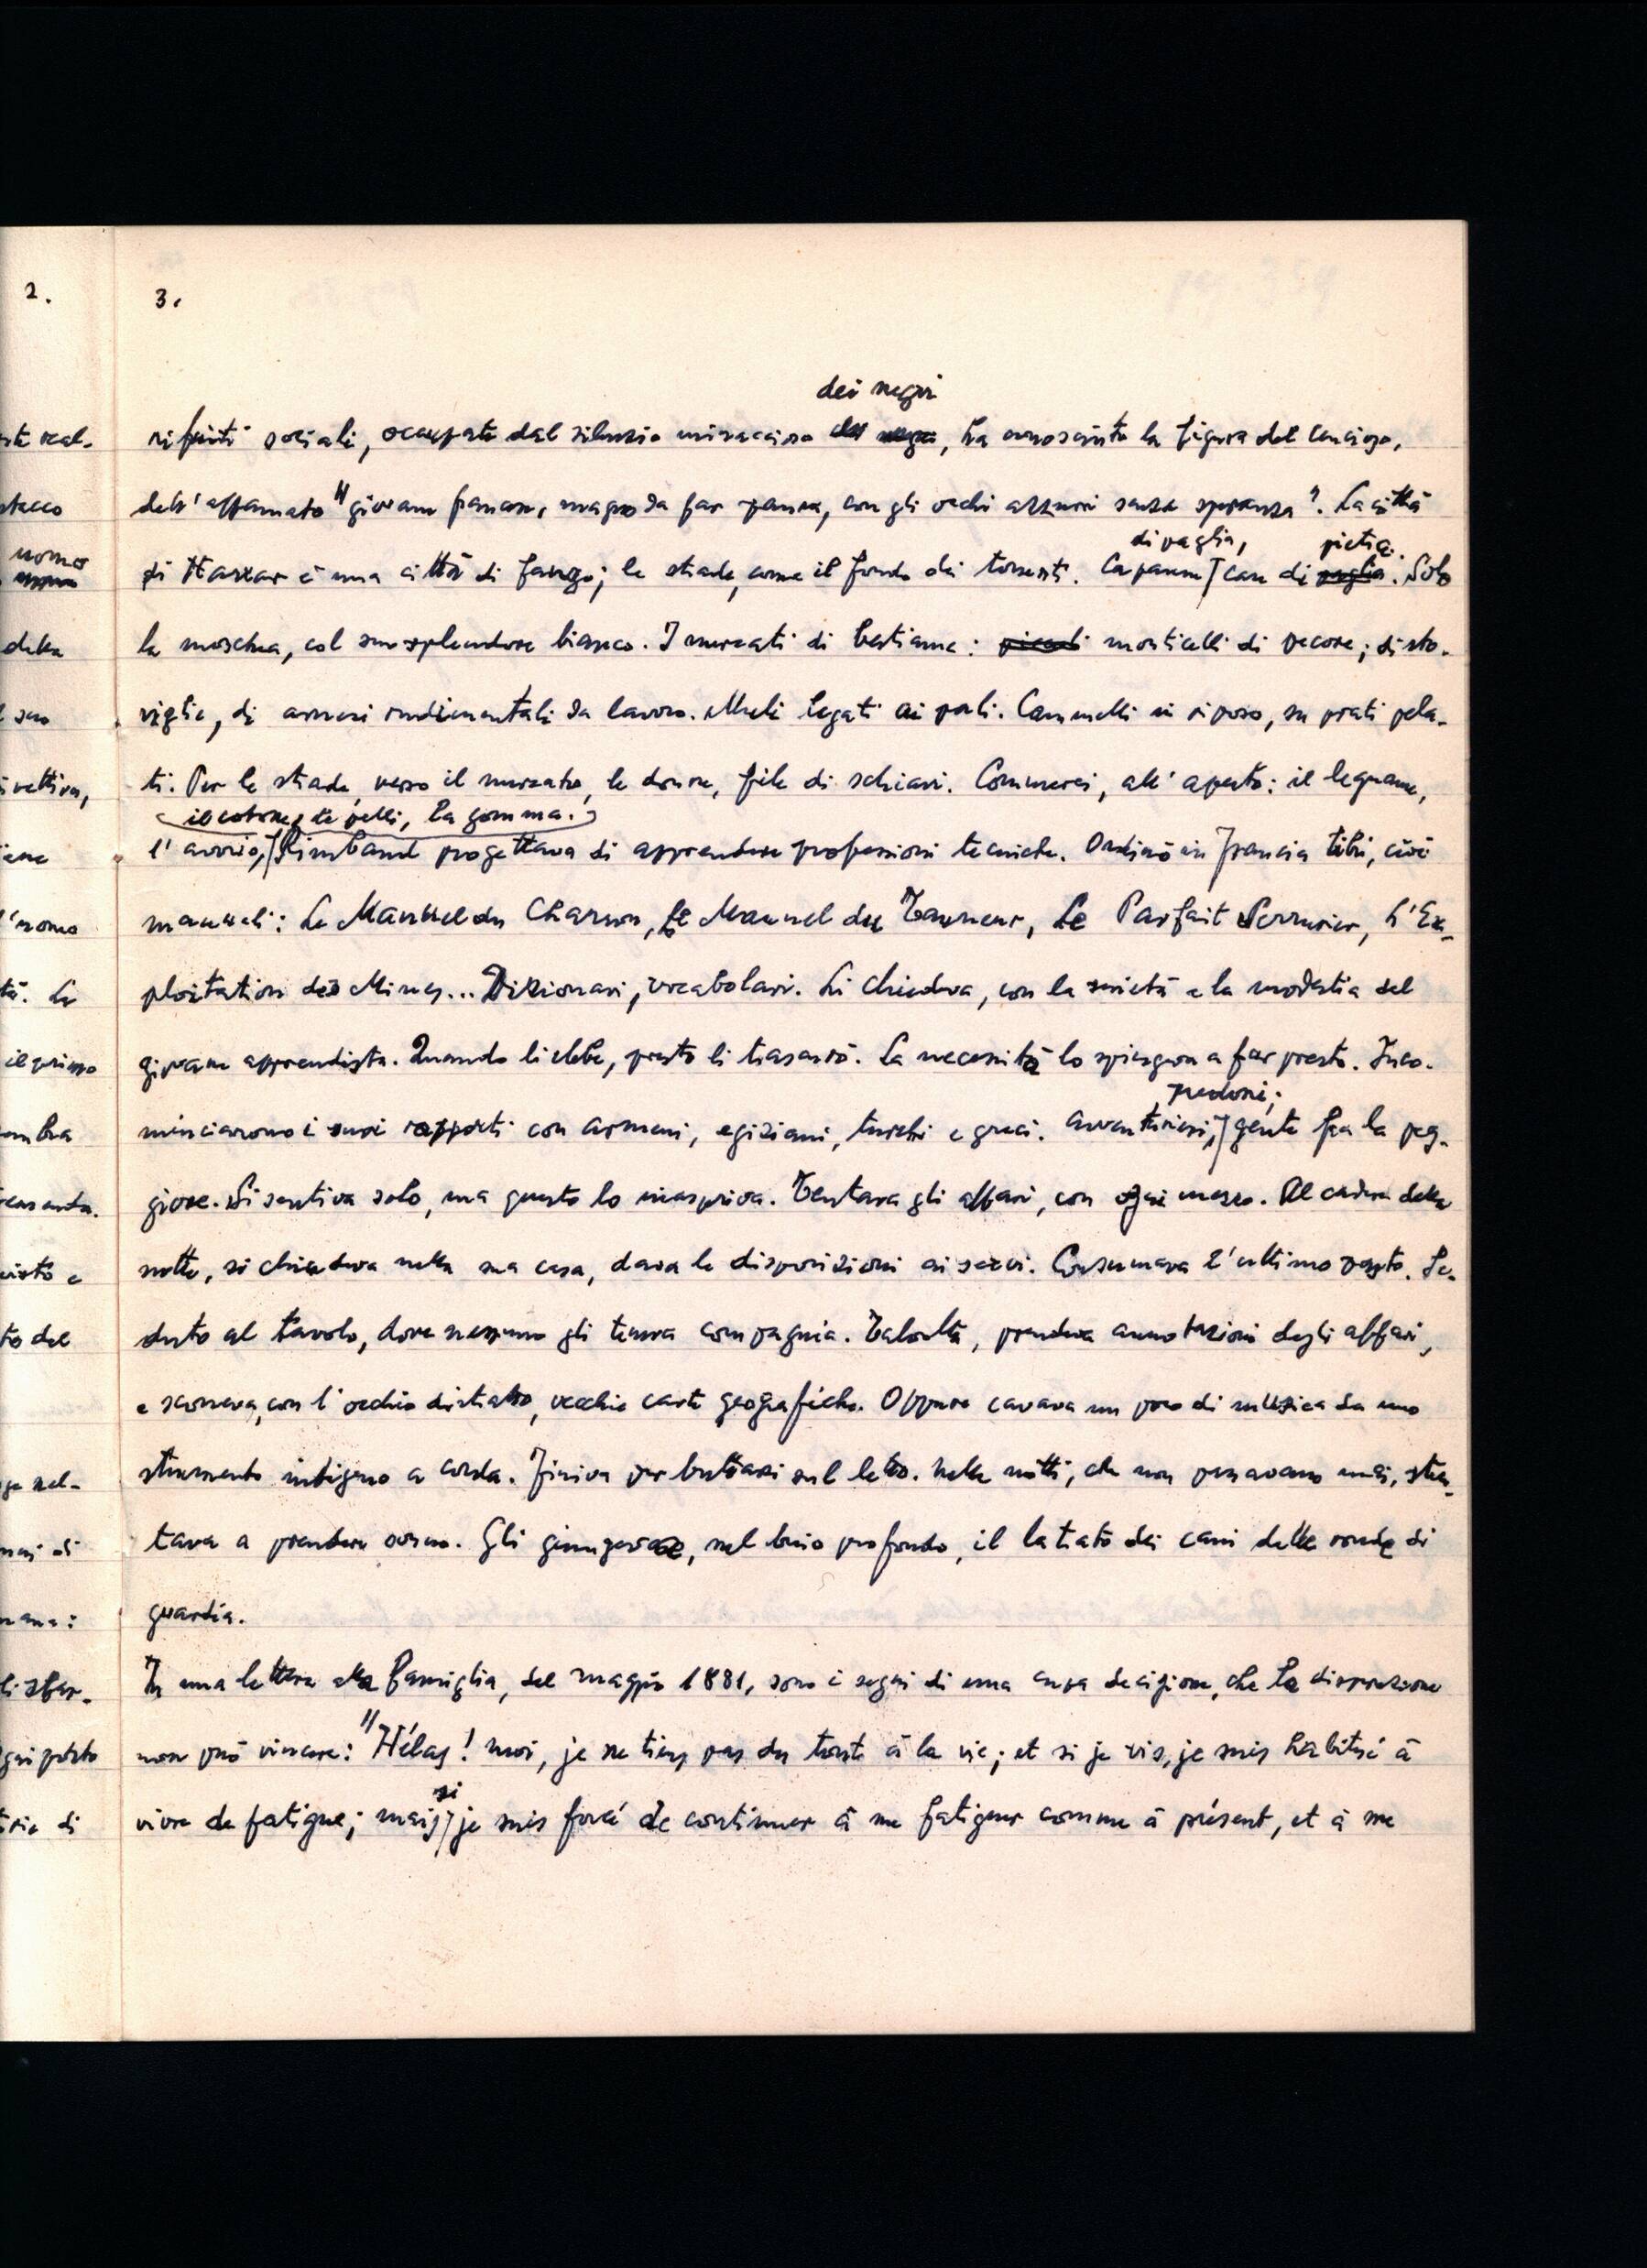 2.
3.
dei negri
rifiuti sociali, occupate dal silenzio minaccioso dei negri, ha conosciuto la figura del cencioso,
dell'affannato "giovane francese, magro da far paura, con gli occhi azzurri senza speranza". La città
di paglia, pietra.
di Harrar è una città di fango; le strade, come il fondo dei torrenti. Capanne case di paglia. Solo
la moschea, col suo splendore bianco. I mercati di bestiame: piccoli monticelli di pecore; di sto-
viglie, di arnesi rudimentali da lavoro. Muli legati ai pali. Cammelli in riposo, su prati pela-
ti. Per le strade, verso il mercato, le donne, file di schiavi. Commerci, all'aperto: il legname,
il cotone, le pelli, la gomma.
l'avorio, Rimbaud progettava di apprendere professioni tecniche. Ordinò in Francia libri, cioè
manuali: Le Manuel du Charron, Le Manuel du Tanneur, Le Parfait Serrurier, L'Ex-
ploitation des Mines... Dizionari, vocabolari. Li chiedeva, con la serietà e la modestia del
giovane apprendista. Quando li ebbe, presto li trascurò. La necessità lo spingeva a far presto. Inco-
predoni;
minciarono i suoi rapporti con armeni, egiziani, turchi e greci. avventurieri, gente fra la peg-
giore. Si sentiva solo, ma questo lo inaspriva. Tentava gli affari, con ogni mezzo. Al cadere della
notte, si chiudeva nella sua casa, dava le disposizioni ai servi. Consumava l'ultimo pasto. Se-
duto al tavolo, dove nessuno gli teneva compagnia. Talvolta, prendeva annotazioni degli affari,
e scorreva, con l'occhio distratto, vecchie carte geografiche. Oppure cavava un poco di musica da uno
strumento indigeno a corda. Finiva per buttarsi sul letto. Nelle notti, che non passavano mai, sten-
tava a prendere sonno. Gli giungeva, nel buio profondo, il latrato dei cani delle ronde di
guardia.
In una lettera alla famiglia, del maggio 1881, sono i segni di una cupa decisione, che la disperazione
non può vincere: "Hélas! moi, je ne tiens pas du tout à la vie; et si je vis, je suis habitué à
si
vivre de fatigue; mais je suis forcé de continuer à me fatiguer comme à présent, et à me